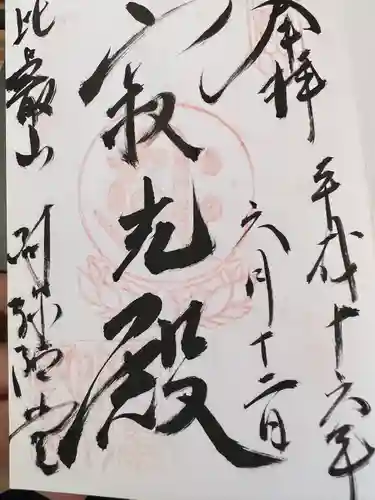 奉拝
平成十六年
六月十二日
寂光殿
比叡山 阿弥陀堂